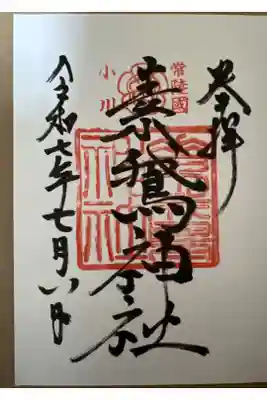 奉拝
常陸國
小川
素鵞神社
令和六年七月八日